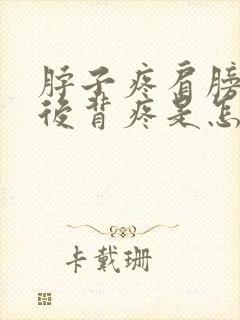 脖子疼肩膀
后背疼是怎
卡戴珊